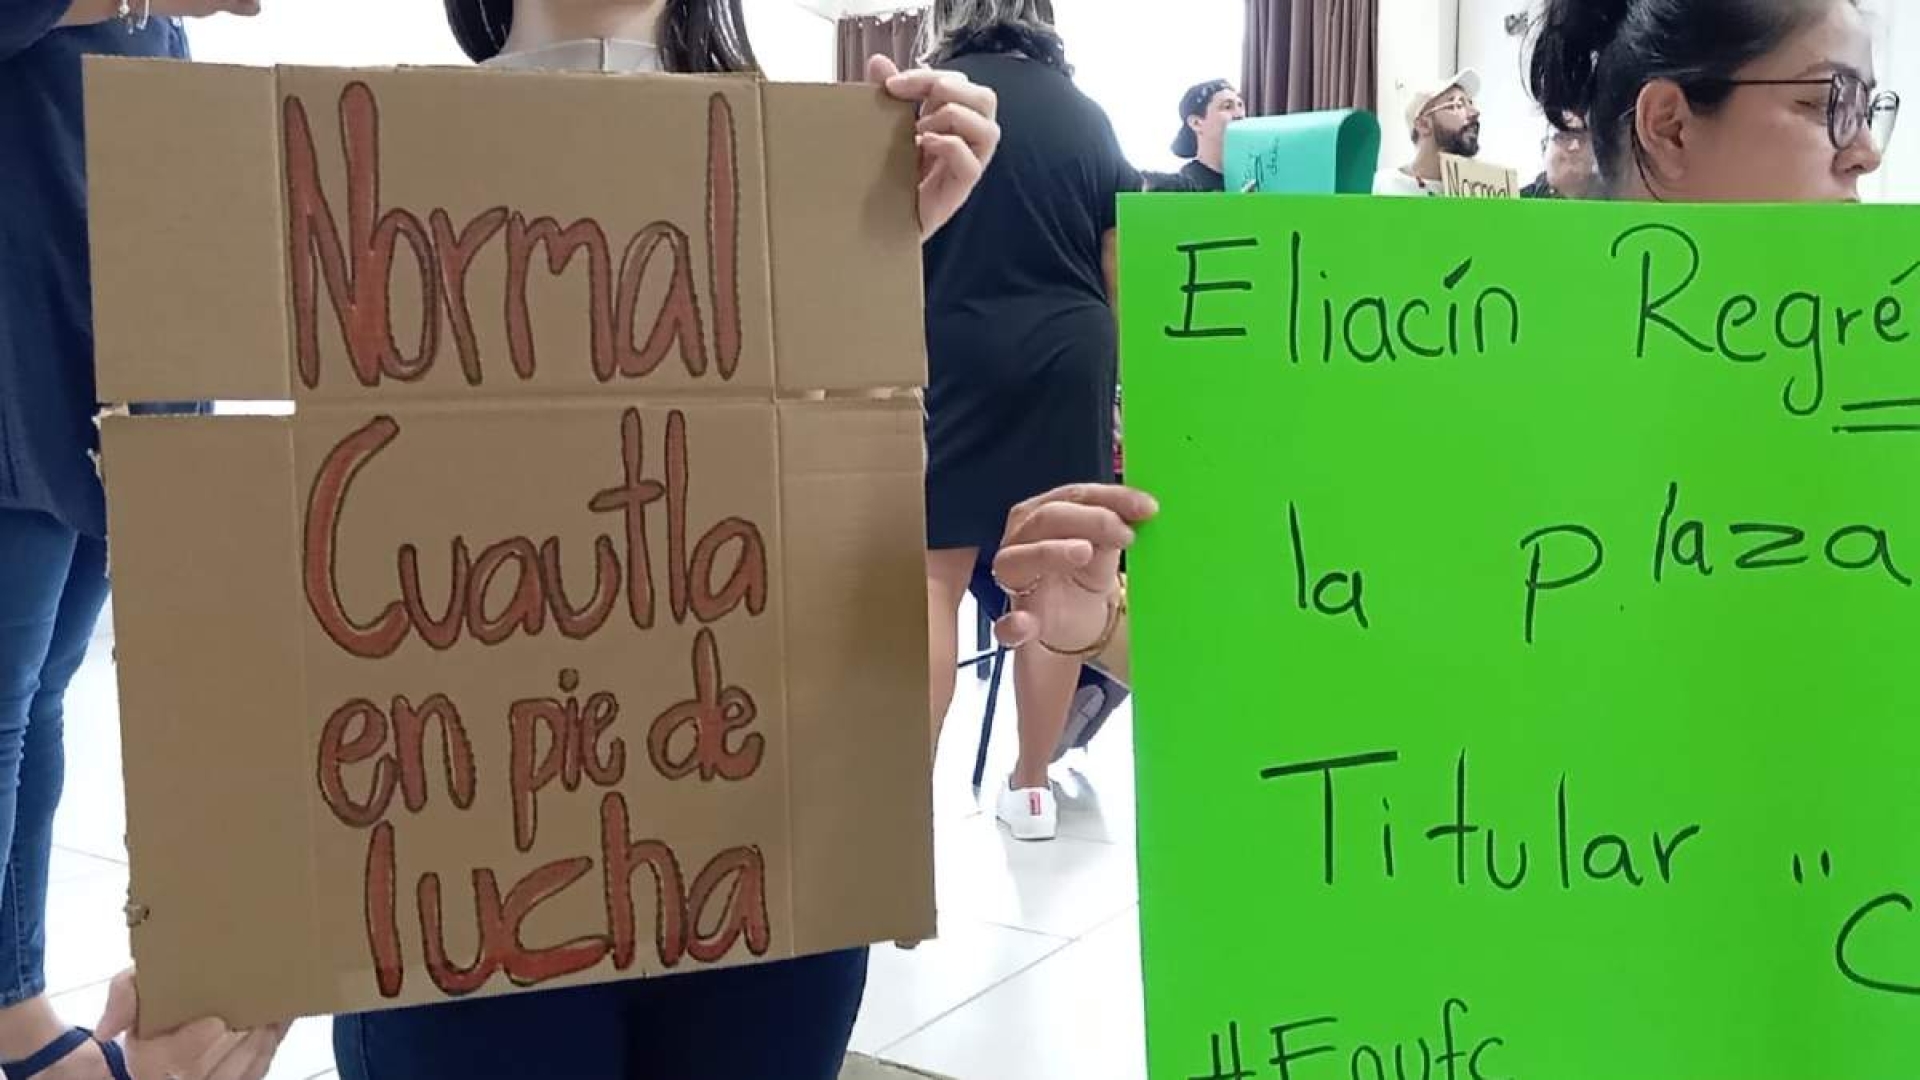 Normal
Cuautla
en pie de
lucha
Normal
Eliacín Regré
la plaza
Titular "C
#Enufc